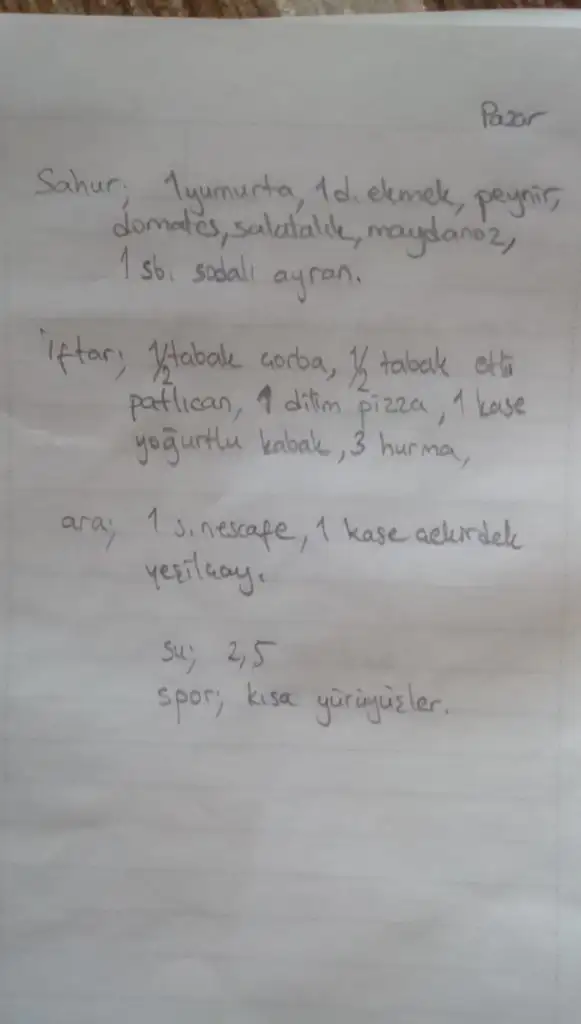 Pazar
Sahur; 1 yumurta, 1 d. ekmek, peynir,
domates, salatalık, maydanoz,
1 sb. sodalı ayran.
iftar; 1/2 tabak çorba, 1/2 tabak etli
patlıcan, 1 dilim pizza, 1 kase
yoğurtlu kabak, 3 hurma,
ara; 1 s. nescafe, 1 kase çekirdek
yeşilçay.
su; 2,5
spor; kısa yürüyüşler.